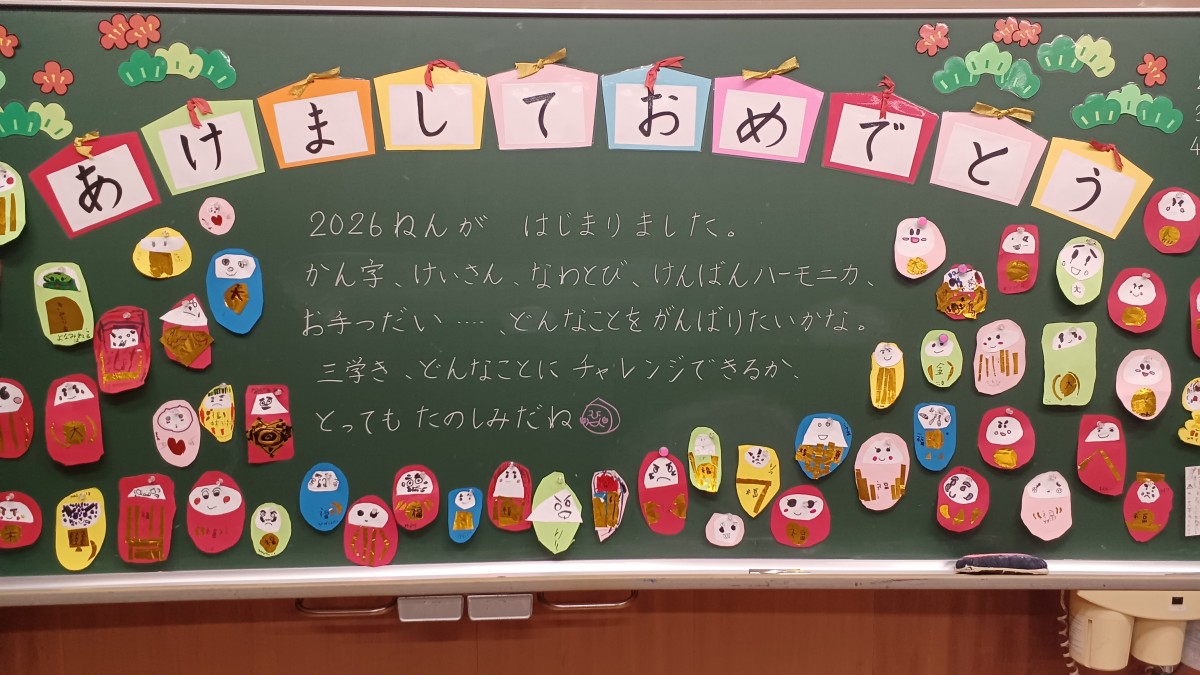 あけましておめでとう
2026ねんが はじまりました。
かん字、けいさん なわとび、けんばんハーモニカ、
お手つだい …… どんなことを がんばりたいかな。
三学き、どんなことに チャレンジできるか、
とっても たのしみだね